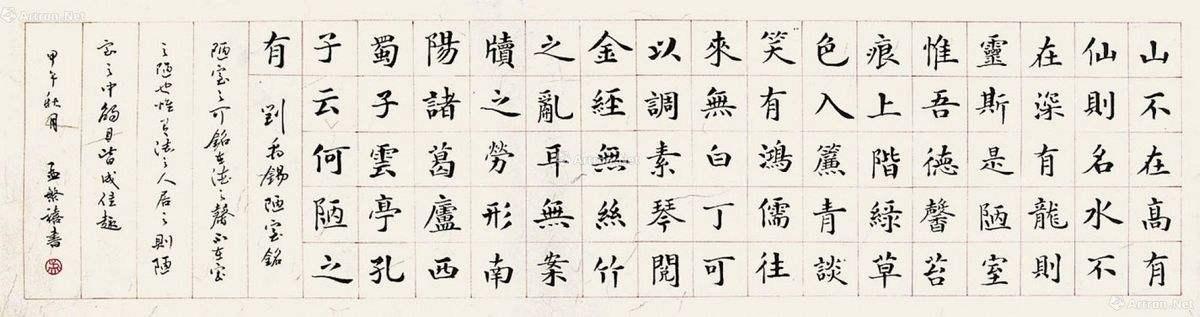 山不在高有
仙則名水不
在深有龍則
靈斯是陋室
惟吾德馨苔
痕上階綠草
色入簾青談
笑有鴻儒往
來無白丁可
以調素琴閱
金經無絲竹
之亂耳無案
牘之勞形南
陽諸葛廬西
蜀子雲亭孔
子云何陋之
有 劉禹錫陋室銘
陋室之可銘在德之馨不在室
之陋也惟有德之人居之則陋
室之中觸目皆成佳趣
甲午秋月 孟繁禧書
Artron.Net
Artron.Net
Artron.Net